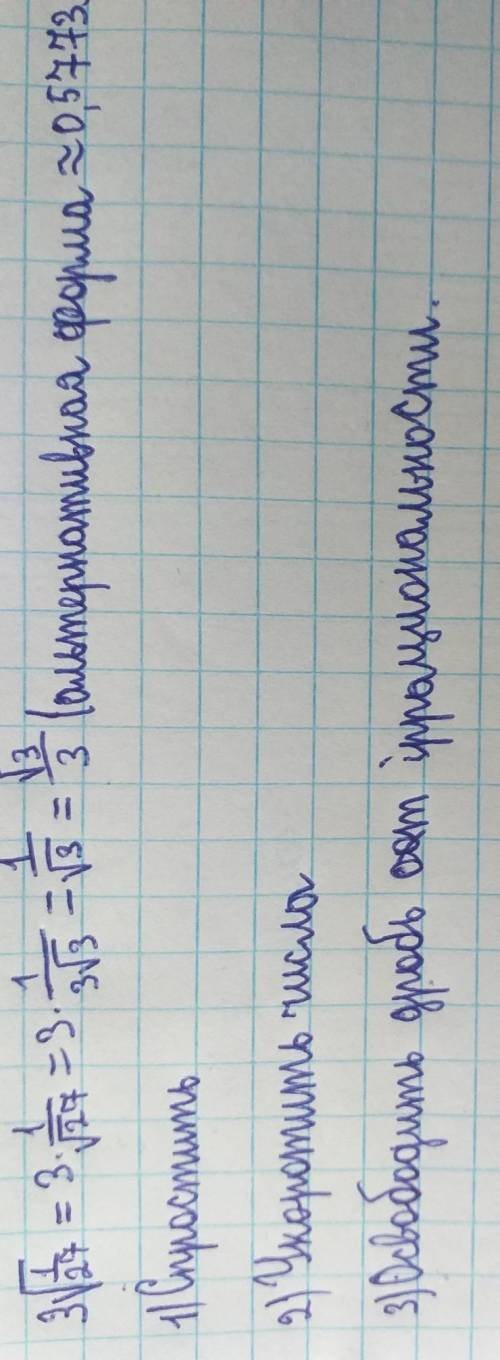 3√1/27 = 3·1/√27 = 3·1/3√3 = 1/√3 = √3/3 (альтернативная форма ≈ 0,5773
1) Спростить
2) Укоротить числа
3) Освободить дробь от iррациональности.